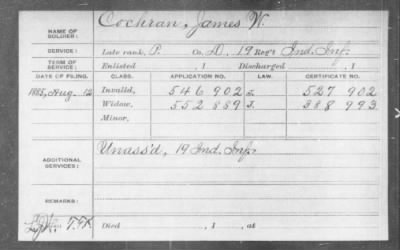 Cochran, James W.
NAME OF SOLDIER:
SERVICE: Late rank, P. Co. D, 19 Reg't Ind. Inf.
TERM OF SERVICE: Enlisted , 1 Discharged , 1
DATE OF FILING. CLASS. APPLICATION NO. LAW. CERTIFICATE NO.
1885, Aug. 12 Invalid, 546 902 527 902
Widow, 552 889 388 993
Minor,
ADDITIONAL SERVICES: Unass'd, 19 Ind. Inf.
REMARKS:
Died , 1 , at